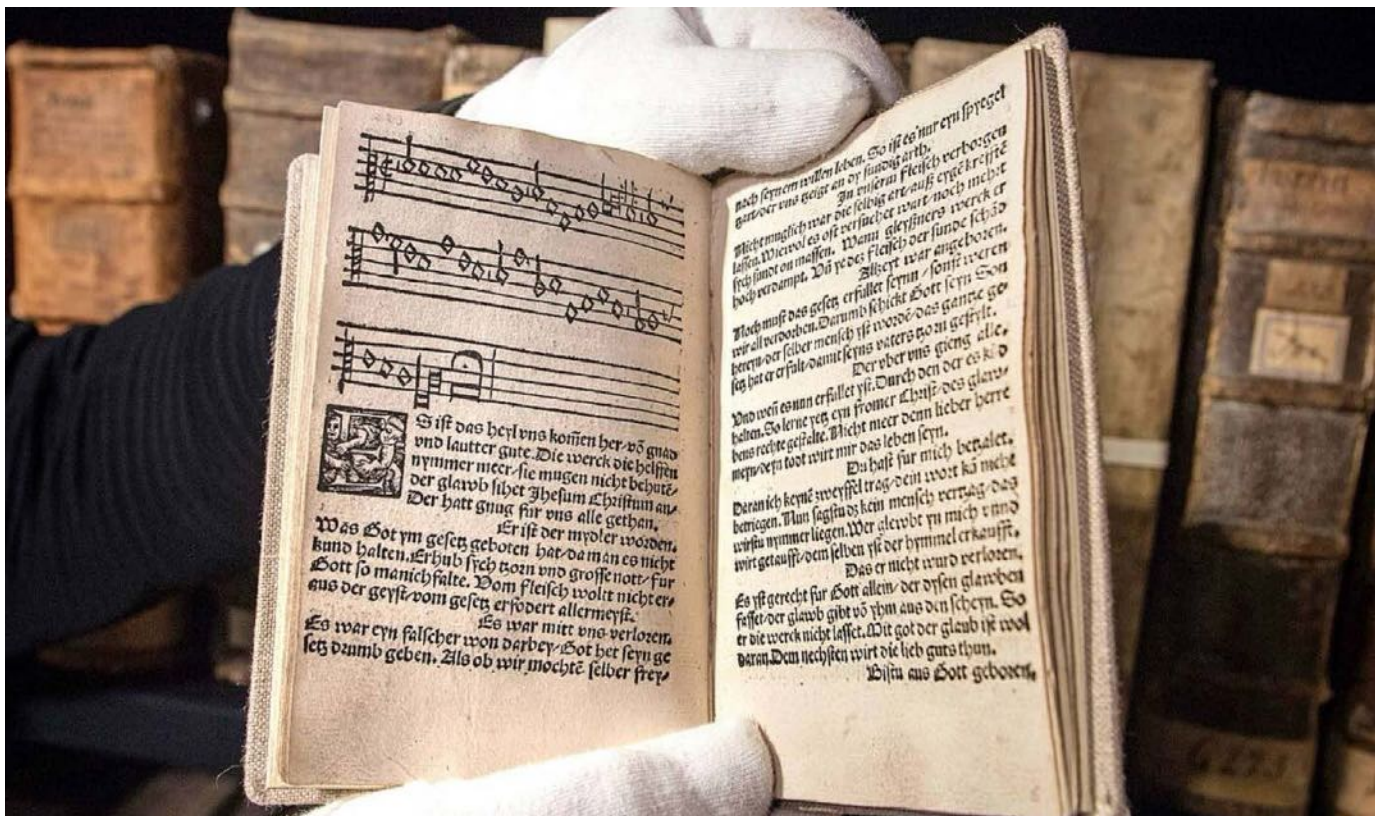 ES iſt das heyl vns kom̃en her/ võ gnad
vnd lautter gute. Die werck die helffen
nymmer meer/ ſie mugen nicht behutẽ/
der glawb ſihet Jheſum Chriſtum an/
Der hatt gnug fur vns alle gethan.
Er iſt der mydler worden.
Was Got ym geſetz geboten hat/ da man es nicht
kund halten. Erhub ſych tzorn vnd groſſe nott/ fur
Gott ſo manichfalte. Vom fleiſch wollt nicht er/
aus der geyſt/ vom geſetz erfodert allermeyſt.
Es war mitt vns verloren.
Es war eyn falſcher won darbey/ Got het ſeyn ge
ſetz drumb geben. Als ob wir mochtẽ ſelber frey/
nach ſeynem willen leben. So iſt es nur eyn ſpyegel
tzart/ der vns tzeigt an dy ſundig arth.
In vnſerm fleiſch verborgen
Nicht muglich war die ſelbig art/ auß eygẽ krefftẽ
laſſen. Wiewol es oft verſuchet wart/ noch mehrt
ſych ſundt on maſſen. Wann gleyßners werck er
hoch verdampt. Vñ ye dez fleiſch der ſunde ſchãd
Allzeyt war angeboren.
Noch muſt das geſetz erfullet ſeynn/ ſonſt weren
wir all verdorben. Darumb ſchickt Gott ſeyn Son
hereyn/ der ſelber menſch yſt wordẽ/ das gantze ge
ſetz hat er erfult/ damit ſeyns vaters tzorn geſtylt.
Der vber vns gieng alle.
Vnd weñ es nun erfullet yſt. Durch den der es kũd
halten. So lerne yetz eyn fromer Chriſt/ des glaw/
bens rechte geſtalte. Nicht meer denn lieber herre
meyn/ deyn todt wirt mir das leben ſeyn.
Du haſt fur mich betzalet.
Daran ich keynẽ zweyffel trag/ dein wort kã nicht
betriegen. Nun ſagſtu dz kein menſch vertzag/ das
wirſtu nymmer liegen. Wer glewbt yn mich vnnd
wirt getaufft/ dem ſelben yſt der hymmel erkaufft.
Das er nicht wurd verloren.
Es yſt gerecht fur Gott allein/ der dyſen glawben
faſſet/ der glawb gibt võ yhm aus den ſcheyn. So
er die werck nicht laſſet. Mit got der glaub iſt wol
daran. Dem nechſten wirt die lieb guts thun.
Biſtu aus Gott geboren.